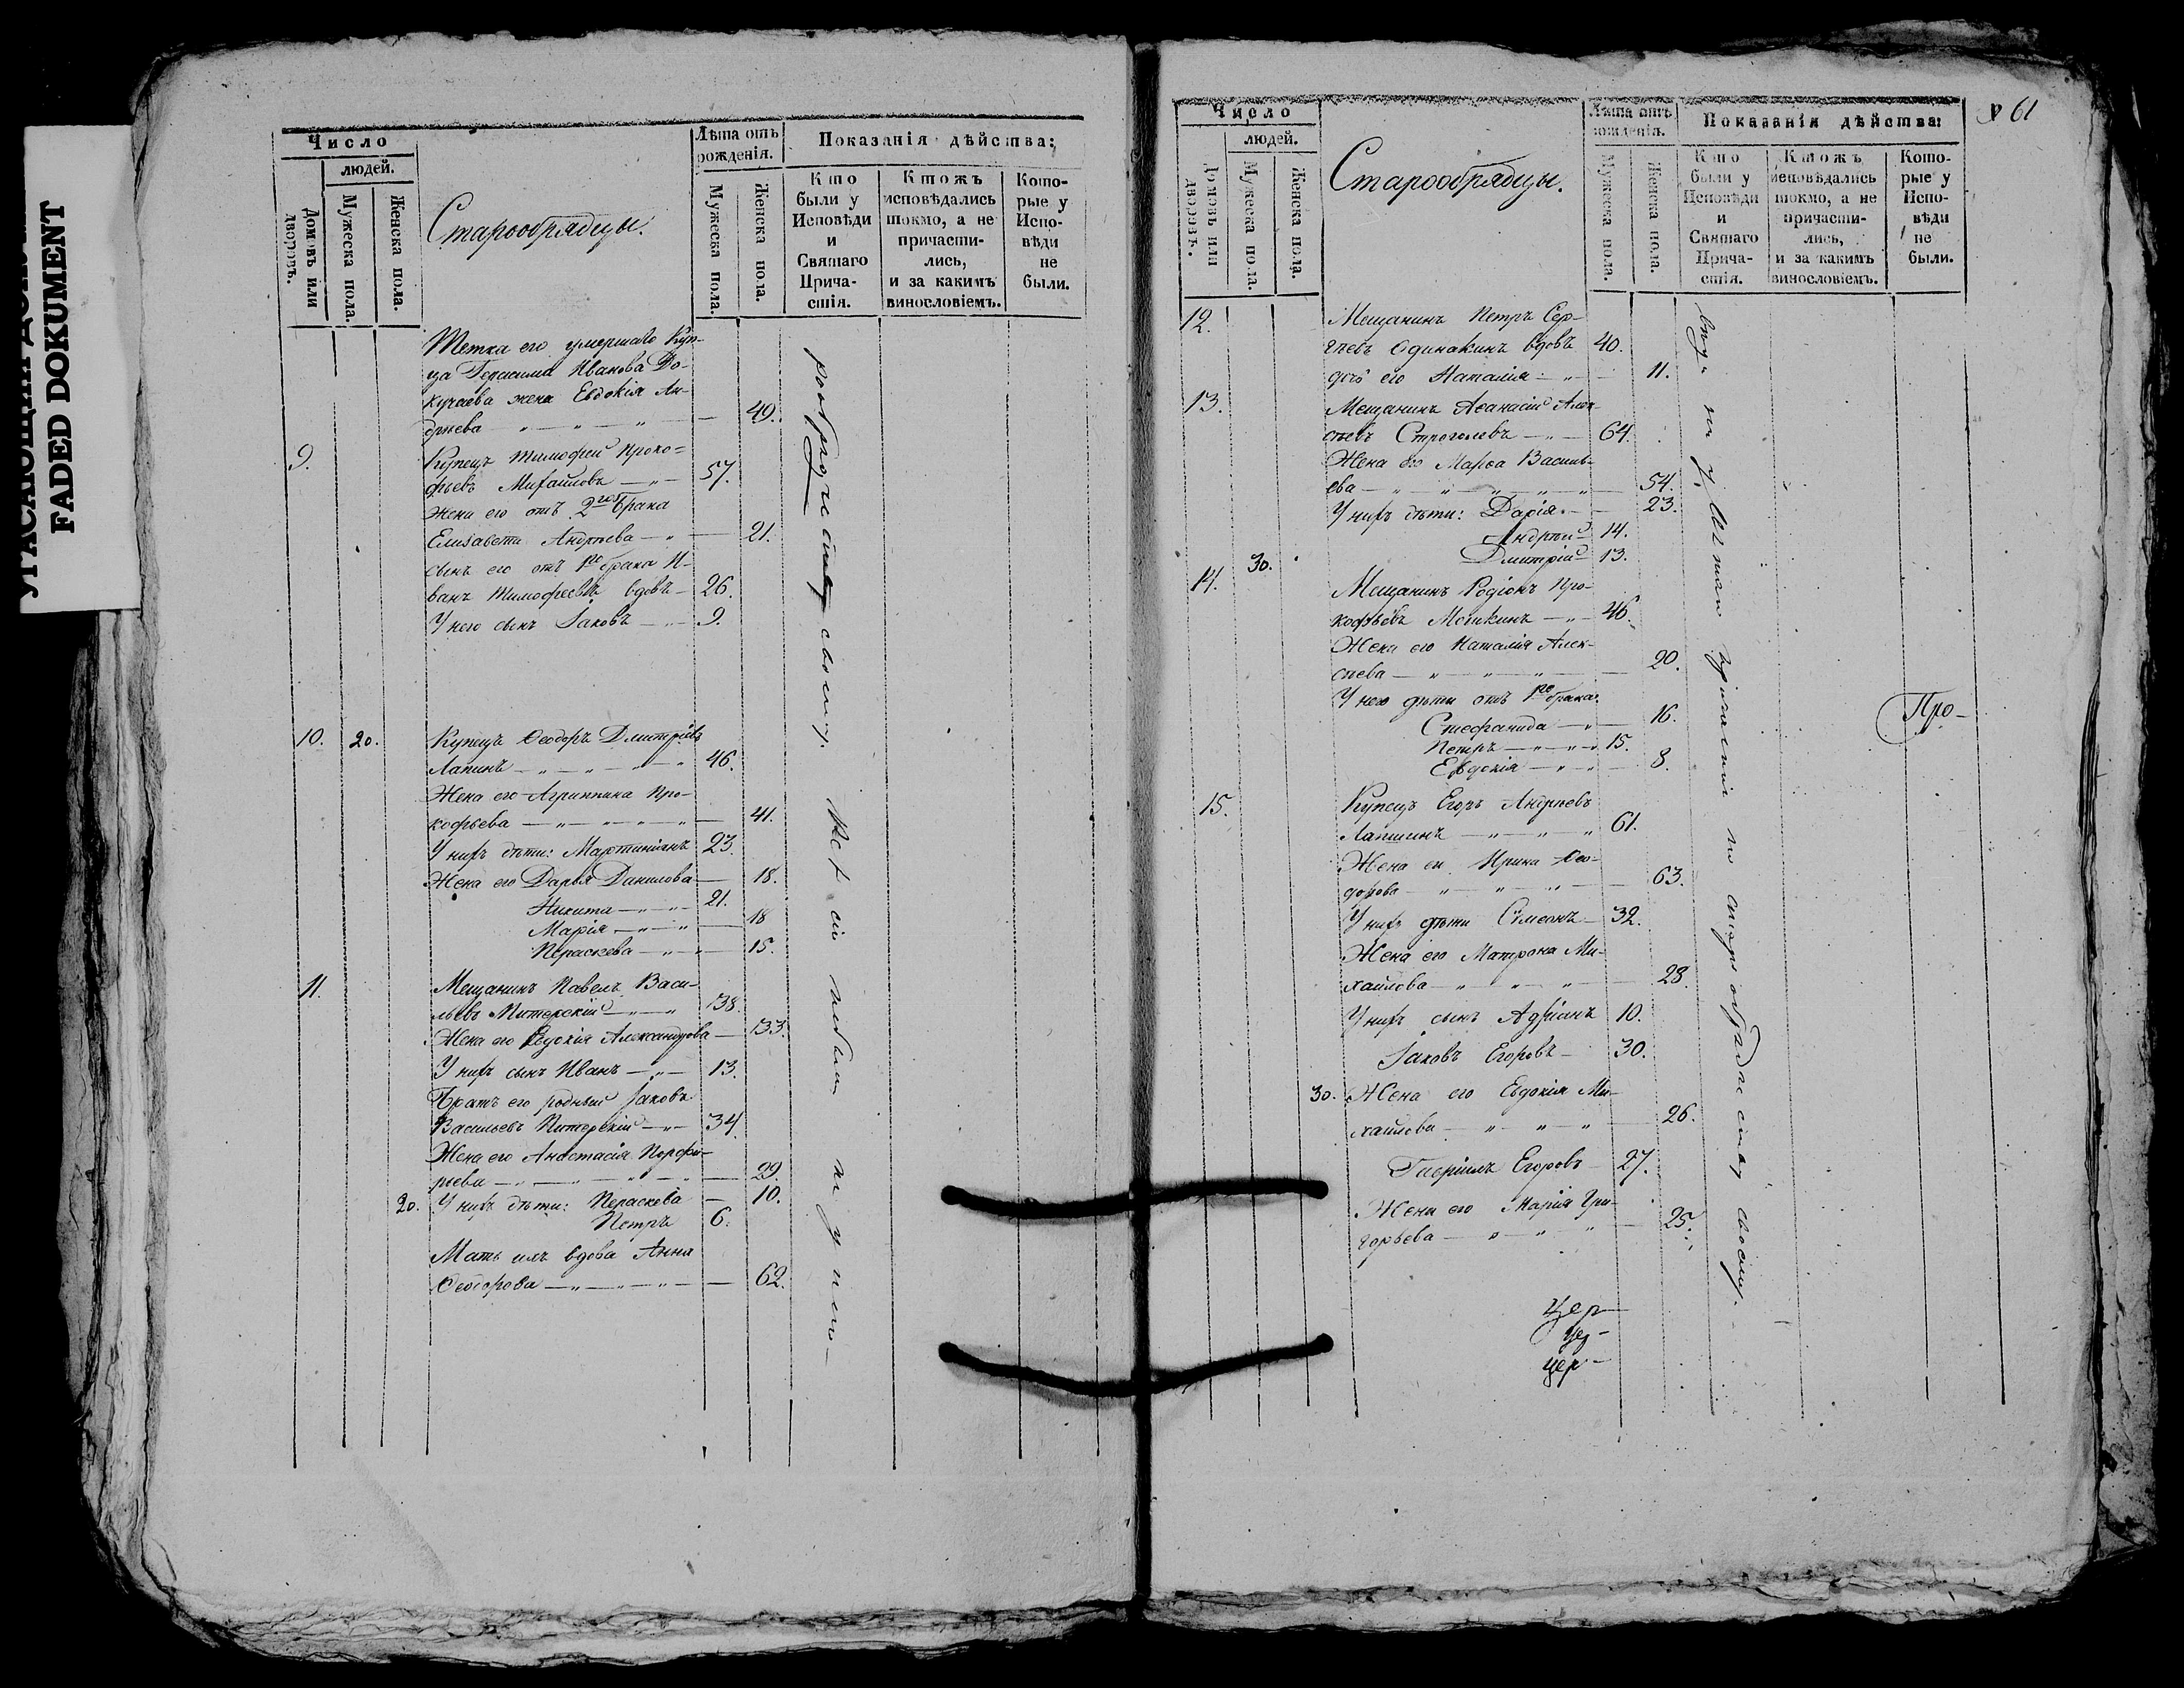 FADED DOKUMENT
Число
людей.
Домовъ или дворовъ.
Мужеска пола.
Женска пола.
Старообрядцы.
Лѣта отъ рожденія.
Мужеска пола.
Женска пола.
Показанія дѣйства:
Кто были у Исповѣди и Святаго Прича-стія.
Ктожъ исповѣдались токмо, а не причасти-лись, и за какимъ винословіемъ.
Кото-рые у Испо-вѣди не были.
Тетка его умершаго Куп-
ца Герасима Иванова До-
кучаева жена Евдокія Ан-
дреева 49.
9. Купецъ Тимофей Проко=
фьевъ Михайловъ 57.
Жена его отъ 2го брака
Елизавета Андреева 21.
сынъ его отъ 1го брака И-
ванъ Тимофеевъ вдовъ 26.
У него сынъ Іаковъ 9.
10. 20. Купецъ Ѳеодоръ Дмитріевъ
Лапинъ 46.
Жена его Агриппина Про-
кофьева 41.
У нихъ дѣти: Мартиніянъ 23.
Жена его Дарья Данилова 18.
Никита 21.
Марія 18
Параскева 15.
11. Мещанинъ Павелъ Васи-
льевъ Питерскій 38.
Жена его Евдокія Александрова 33.
У нихъ сынъ Иванъ 13.
Братъ его родный Іаковъ
Васильевъ Питерскій 34.
Жена его Анастасія Порфи-
рьева 29.
20. У нихъ дѣти: Параскева 10.
Петръ 6.
Мать ихъ вдова Анна
Ѳеодорова 62.
рообрядчеству своему.
Всѣ сіи небыли ни у испо-
61
Число
людей.
Домовъ или дворовъ.
Мужеска пола.
Женска пола.
Старообрядцы.
Лѣта отъ рожденія.
Мужеска пола.
Женска пола.
Показанія дѣйства:
Кто были у Исповѣди и Святаго Прича-стія.
Ктожъ исповѣдались токмо, а не причасти-лись, и за какимъ винословіемъ.
Кото-рые у Испо-вѣди не были.
12. Мещанинъ Петръ Сер-
гѣевъ Одинакинъ вдовъ 40.
дочь его Наталія 11.
13. Мещанинъ Аѳанасій Алек-
сѣевъ Строголевъ 64.
Жена его Марѳа Василь-
ева 54.
У нихъ дѣти: Дарія 23.
Андрей 14.
30. Дмитрій 13.
14. Мещанинъ Родіонъ Про-
кофьевъ Мошкинъ 46.
Жена его Наталія Алек-
сѣева 20.
У него дѣти отъ 1го брака.
Стефанида 16.
Петръ 15.
Евдокія 8.
15. Купецъ Егоръ Андреевъ
Лапшинъ 61.
Жена его Ирина Ѳео-
дорова 63.
У нихъ дѣти Сімеонъ 32.
Жена его Матрона Ми-
хайлова 28.
У нихъ сынъ Адріанъ 10.
Іаковъ Егоровъ 30.
30. Жена его Евдокія Ми-
хайлова 26.
Гавріилъ Егоровъ 27.
Жена его Марія Гри-
горьева 25.
вѣди ни у Святаго причастія по старообрядчеству своему.
Про-
Цер-
цер-